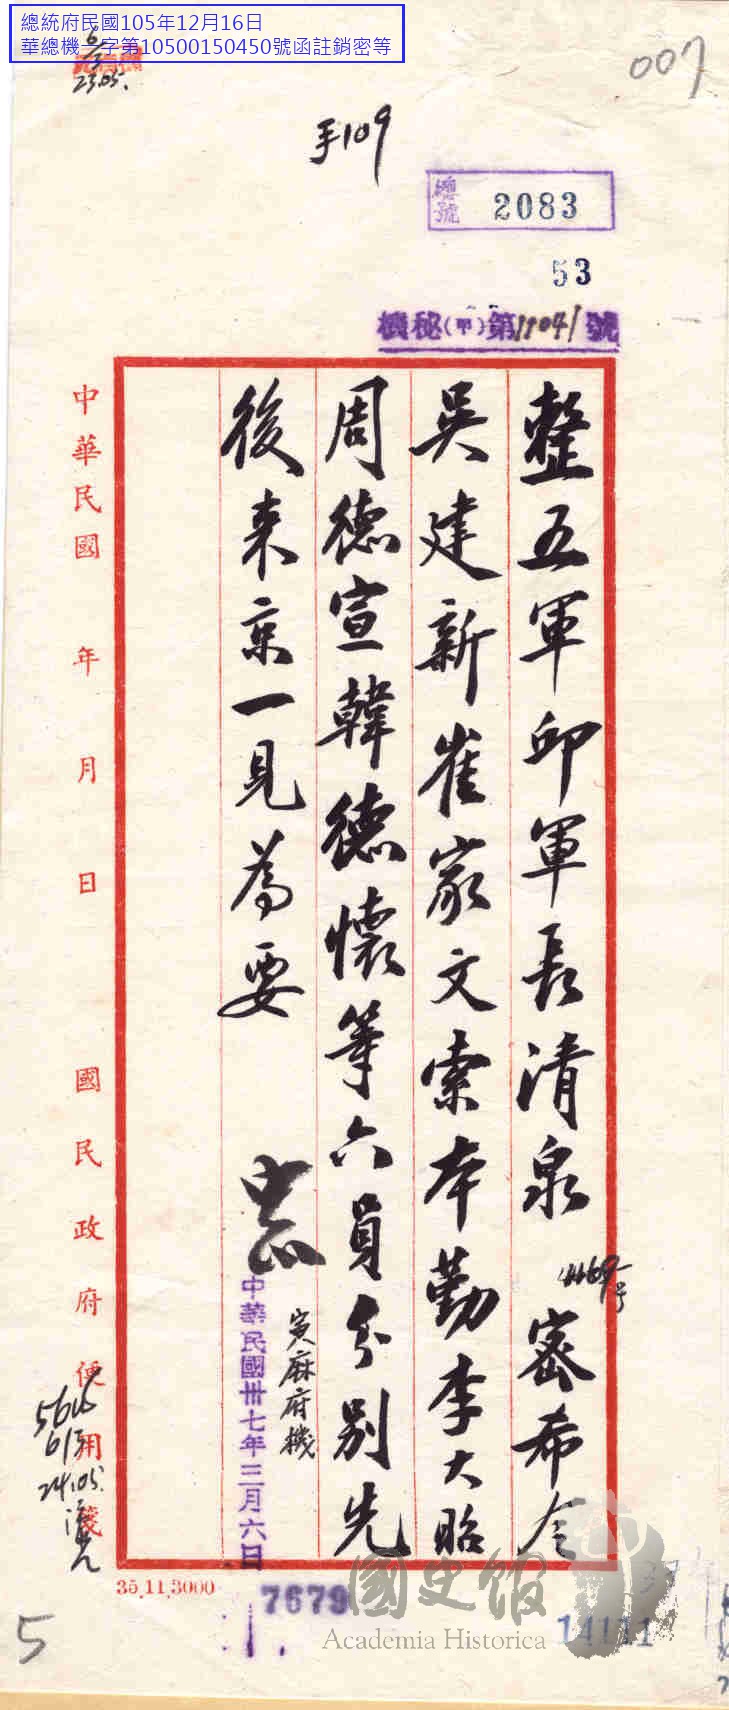 總統府民國105年12月16日
華總機一字第10500150450號函註銷密等
007
手109
總號 2083
53
機秘(甲)第11041號
整五軍邱軍長清泉 密希令
吳建新崔家文索本勤李大昭
周德宣韓德懷等六員分別先
後來京一見為要
中正
寅麻府機
中華民國卅七年三月六日
中華民國 年 月 日 國民政府便用箋
35.11.3000
7679
14111
5
國史館
Academia Historica